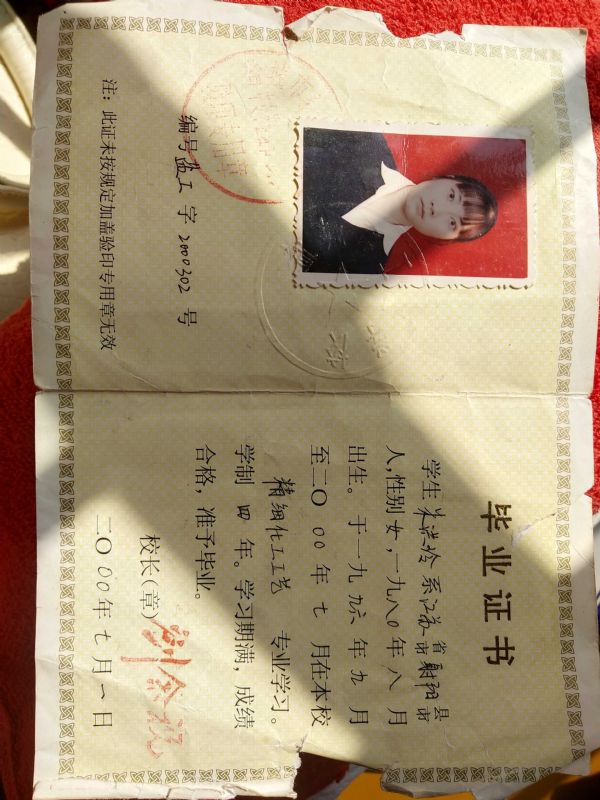 毕业证书
学生朱洪玲系江苏省市射阳县市
人,性别女,一九八〇年八月
出生。于一九九六年九月
至二〇〇〇年七月在本校
精细化工工艺 专业学习。
学制四年。学习期满,成绩
合格,准予毕业。
校长(章)
二〇〇〇年七月一日
编号盐工字2000302号
注:此证未按规定加盖验印专用章无效